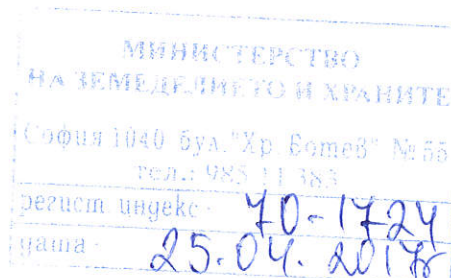 МИНИСТЕРСТВО
НА ЗЕМЕДЕЛИЕТО И ХРАНИТЕ
София 1040 бул. "Хр. Ботев" № 55
тел.: 985 11 383
регист. индекс: 70-1724
дата: 25.04.2017г